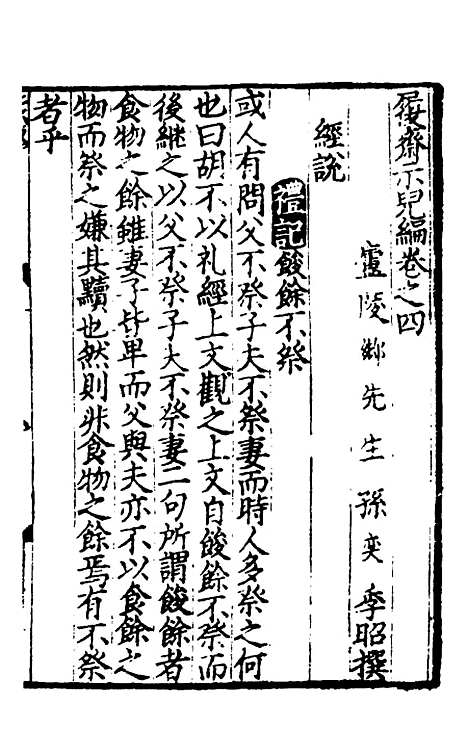 履齋示兒編卷之四
廬陵鄉先生孫奕季昭撰
經說
禮記餕餘不祭
或人有問父不祭子夫不祭妻而時人多祭之何
也曰胡不以礼經上文觀之上文自餕餘不祭而
後継之以父不祭子夫不祭妻二句所謂餕餘者
食物之餘雖妻子皆卑而父與夫亦不以食餘之
物而祭之嫌其黷也然則非食物之餘焉有不祭
者乎